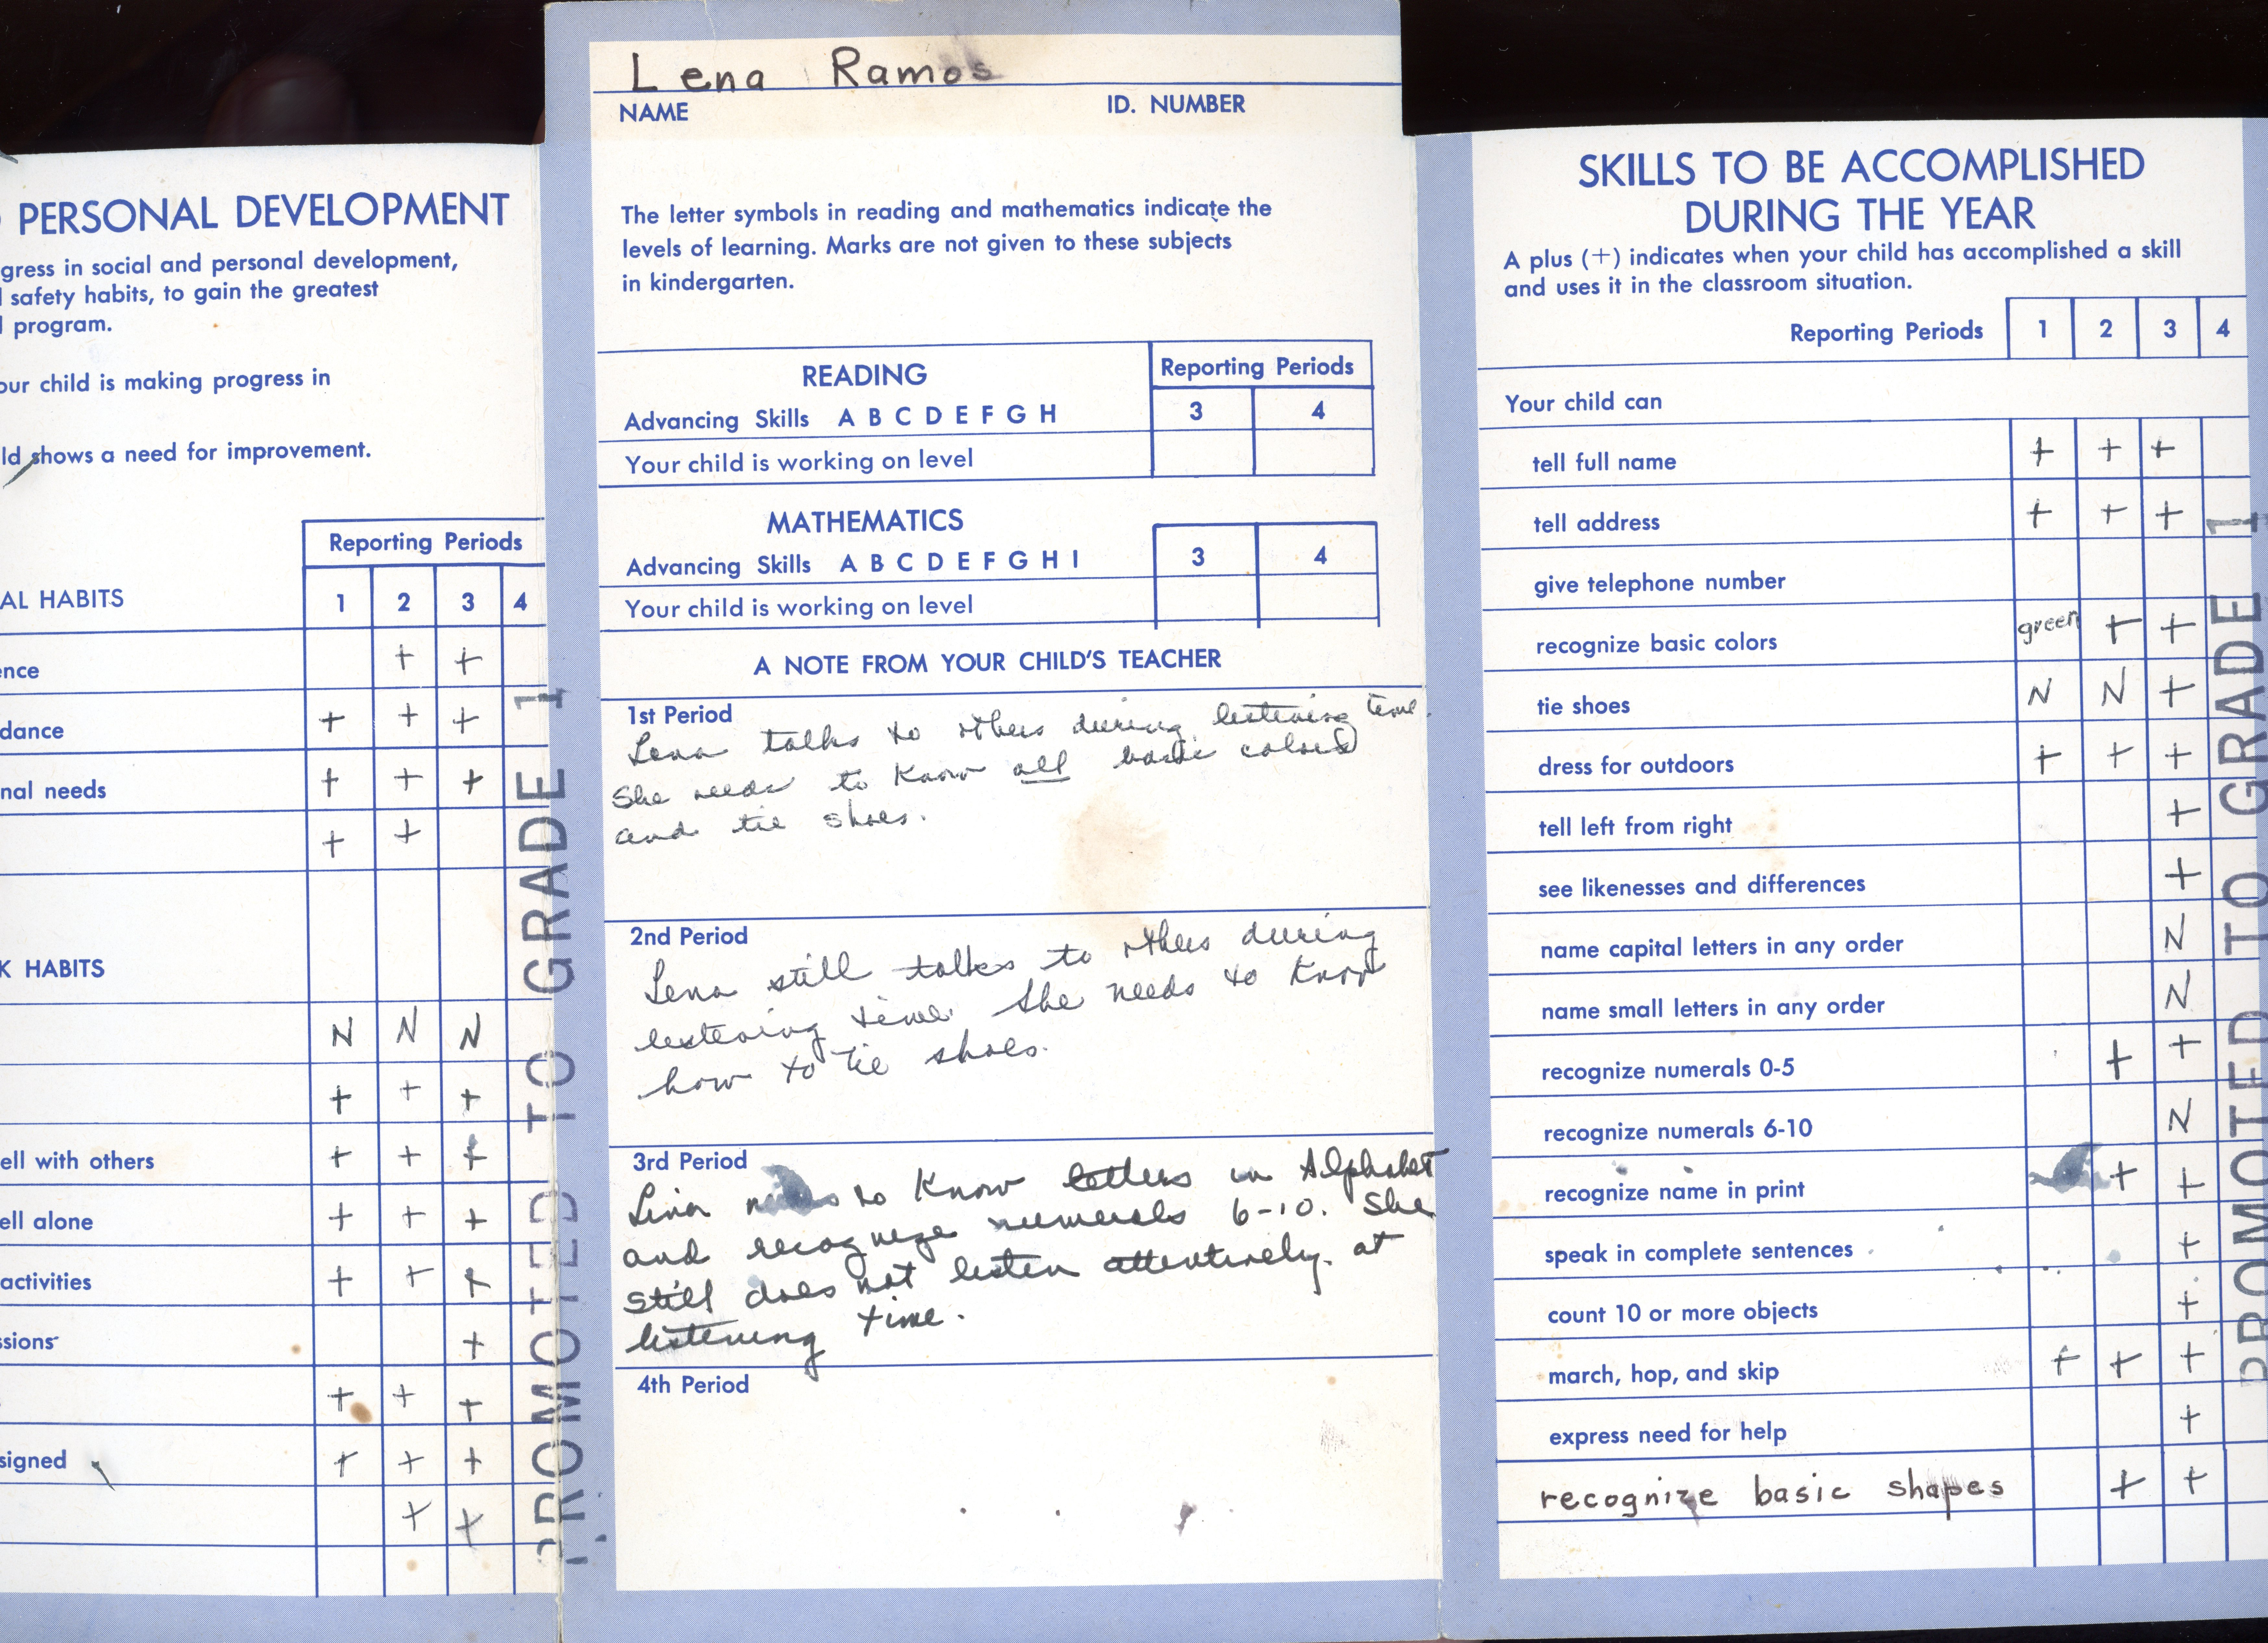 PERSONAL DEVELOPMENT
gress in social and personal development,
safety habits, to gain the greatest
program.
our child is making progress in
ld shows a need for improvement.
Reporting Periods
AL HABITS 1 2 3 4
ence + +
dance + + +
nal needs + + +
+ +
K HABITS
N N N
+ + +
ell with others + + +
ell alone + + +
activities + + +
ssions +
+ + +
signed + + +
+ +
PROMOTED TO GRADE 1
Lena Ramos
NAME ID. NUMBER
The letter symbols in reading and mathematics indicate the
levels of learning. Marks are not given to these subjects
in kindergarten.
READING Reporting Periods
Advancing Skills A B C D E F G H 3 4
Your child is working on level
MATHEMATICS
Advancing Skills A B C D E F G H I 3 4
Your child is working on level
A NOTE FROM YOUR CHILD'S TEACHER
1st Period
Lena talks to others during listening time.
She needs to know all basic colors
and tie shoes.
2nd Period
Lena still talks to others during
listening time. She needs to know
how to tie shoes.
3rd Period
Lena needs to know letters in Alphabet
and recognize numerals 6-10. She
still does not listen attentively at
listening time.
4th Period
SKILLS TO BE ACCOMPLISHED
DURING THE YEAR
A plus (+) indicates when your child has accomplished a skill
and uses it in the classroom situation.
Reporting Periods 1 2 3 4
Your child can
tell full name + + +
tell address + + +
give telephone number
recognize basic colors green + +
tie shoes N N +
dress for outdoors + + +
tell left from right +
see likenesses and differences +
name capital letters in any order N
name small letters in any order N
recognize numerals 0-5 + +
recognize numerals 6-10 N
recognize name in print + +
speak in complete sentences +
count 10 or more objects +
march, hop, and skip + + +
express need for help +
recognize basic shapes + +
PROMOTED TO GRADE 1